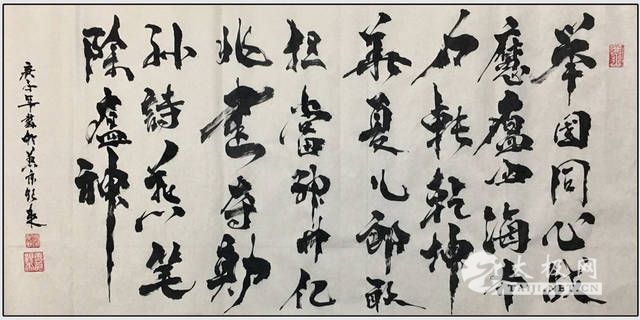 举国同心
魔瘟四海齐
力转乾坤
华夏儿郎敢
担当神州亿
兆奇勋
孙詩笔
除瘟神
庚子年
太极网
TAIJI.NET.CN